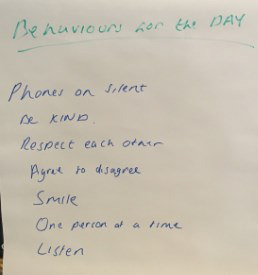 Behaviours for the DAY
Phones on silent
Be KIND.
Respect each other
Agree to disagree
Smile
One person at a time
Listen